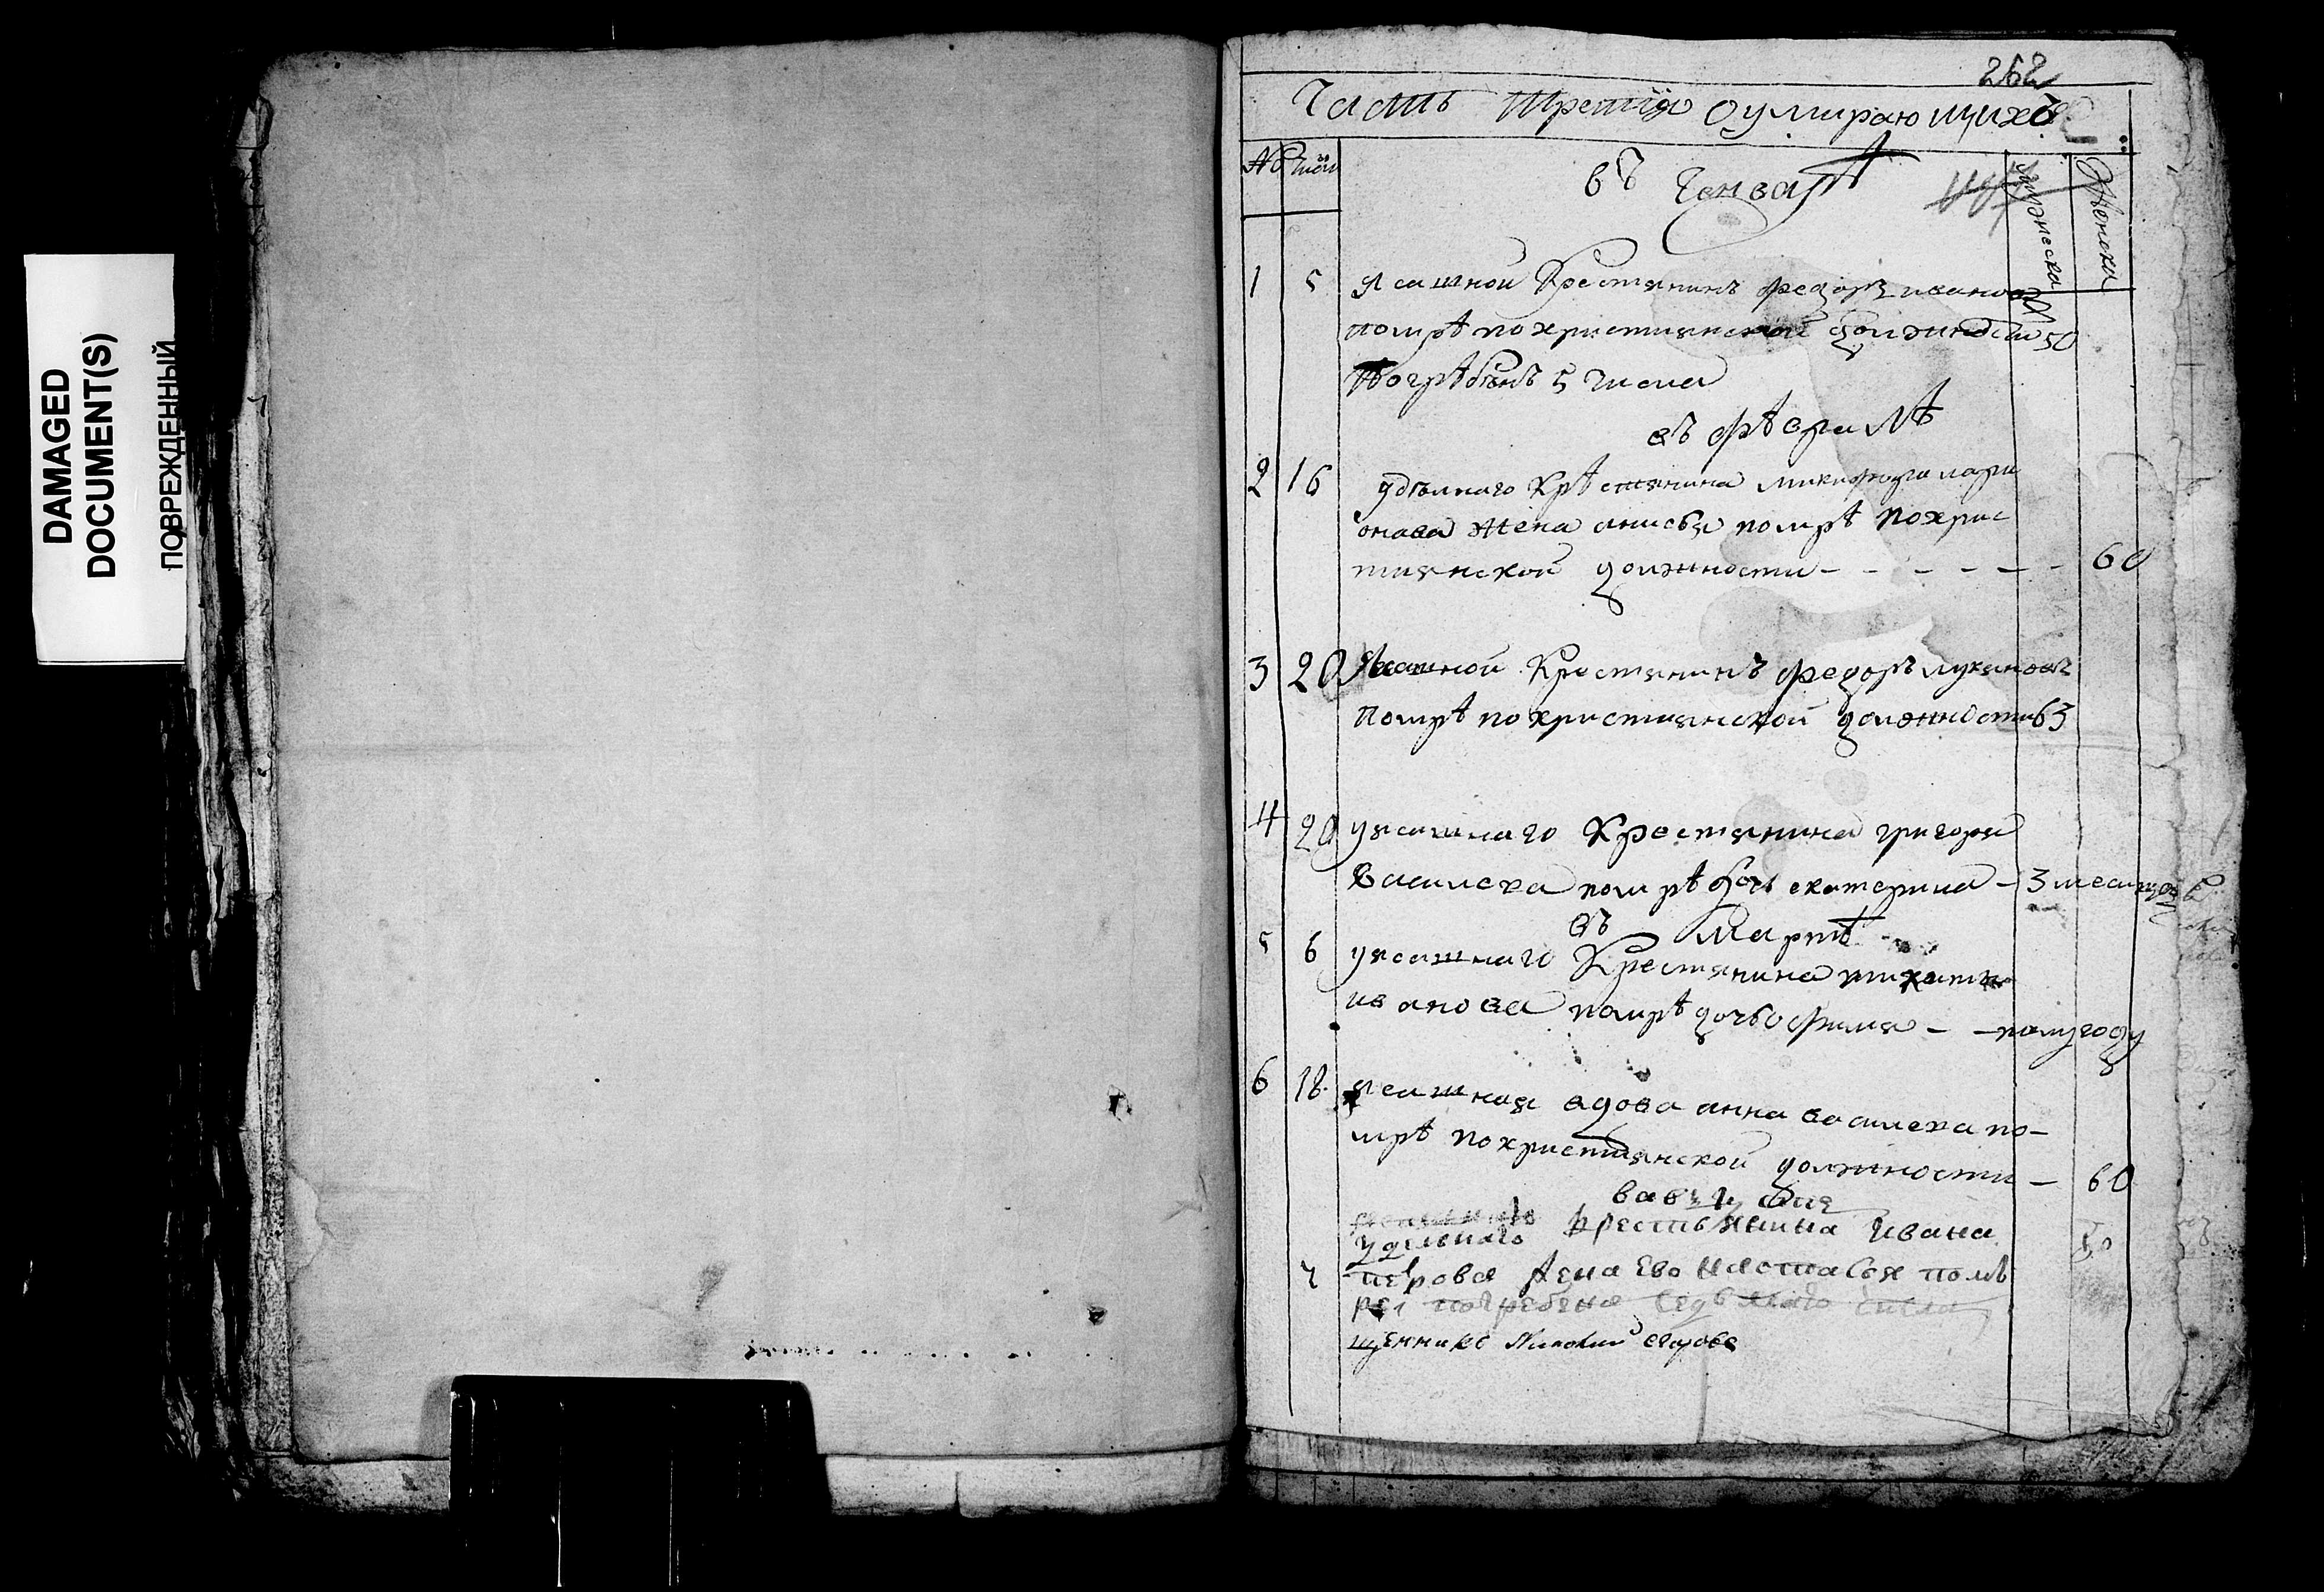 DAMAGED
DOCUMENT(S)
ПОВРЕЖДЕННЫЙ
262
Часть третія о умирающихъ
№ число мужеска женска
въ Генварѣ
1 5 ясашной крестянинъ федоръ иванов
помрѣ по христианской должности 50
погрѣбѣнъ 5 числа
въ фѣвралѣ
2 16 удѣлнаго крѣстянина микифора лари
онова жена анисья помрѣ по хрис
тиянской должности - - - - - - 60
3 20 Ясашной крестянинъ федоръ лукяновъ
помрѣ по християнской должности 63
4 20 у ясашнаго крестянина григоря
василева помрѣ дочь екатерина - 3 месяцов
въ Мартѣ
5 6 у ясашнаго крестянина
иванова помрѣ дочь офимя - - полугоду
6 18 ясашная вдова анна василева по-
мрѣ по христианской должности - 60
удельнаго крестьянина Ивана 50
7 петрова жена Ево Настасья помѣ
рет погребена седьмаго числа
щенникъ